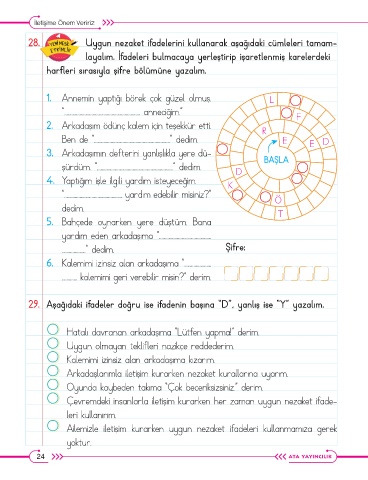 İletişime Önem Veririz
28. YENİ NESİL ETKİNLİK Uygun nezaket ifadelerini kullanarak aşağıdaki cümleleri tamam-
layalım. İfadeleri bulmacaya yerleştirip işaretlenmiş karelerdeki
harfleri sırasıyla şifre bölümüne yazalım.
1. Annemin yaptığı börek çok güzel olmuş.
"........................ anneciğim."
2. Arkadaşım ödünç kalem için teşekkür etti.
Ben de "........................" dedim.
3. Arkadaşımın defterini yanlışlıkla yere dü-
şürdüm. "........................" dedim.
4. Yaptığım işle ilgili yardım isteyeceğim.
"........................ yardım edebilir misiniz?"
dedim.
5. Bahçede oynarken yere düştüm. Bana
yardım eden arkadaşıma "........................
............" dedim.
6. Kalemimi izinsiz alan arkadaşıma "............
........ kalemimi geri verebilir misin?" derim.
L
F
R
E
E
D
BAŞLA
D
K
Ö
T
Şifre:
29. Aşağıdaki ifadeler doğru ise ifadenin başına "D", yanlış ise "Y" yazalım.
Hatalı davranan arkadaşıma "Lütfen yapma!" derim.
Uygun olmayan teklifleri nazikçe reddederim.
Kalemimi izinsiz alan arkadaşıma kızarım.
Arkadaşlarımla iletişim kurarken nezaket kurallarına uyarım.
Oyunda kaybeden takıma "Çok beceriksizsiniz." derim.
Çevremdeki insanlarla iletişim kurarken her zaman uygun nezaket ifade-
leri kullanırım.
Ailemizle iletişim kurarken uygun nezaket ifadeleri kullanmamıza gerek
yoktur.
24
ATA YAYINCILIK